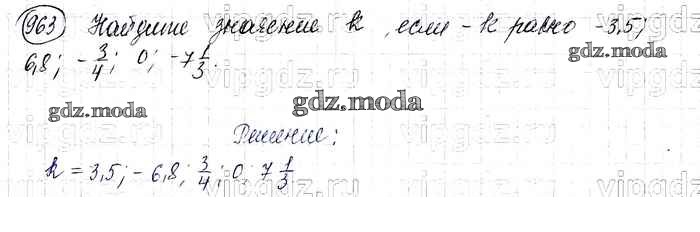 963 Найдите значение k, если -k равно -3,5;
6,8; -3/4; 0; -7 1/3.
gdz.moda
gdz.moda
gdz.moda
Решение:
k = 3,5; -6,8; 3/4; 0; 7 1/3
vipgdz.ru
vipgdz.ru
vipgdz.ru